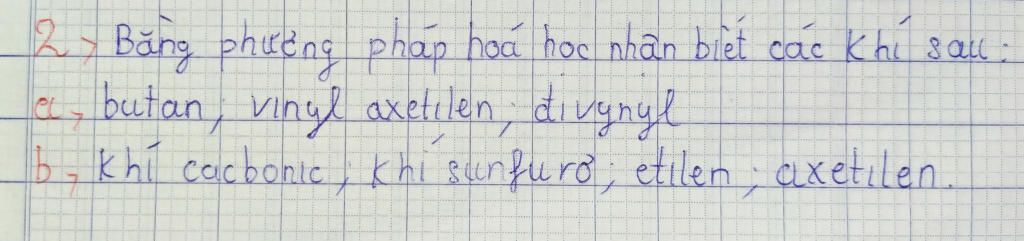 2, Bằng phương pháp hoá học nhận biết các khí sau:
a, butan; vinyl axetilen; đivynyl
b, khí cacbonic; khí sunfurơ; etilen; axetilen.